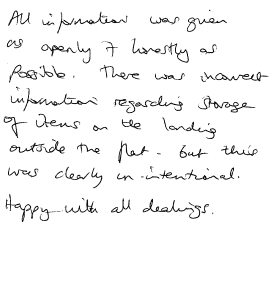 All information was given
as openly & honestly as
possible. There was incorrect
information regarding storage
of items on the landing
outside the flat - but this
was clearly un-intentional.
Happy with all dealings.